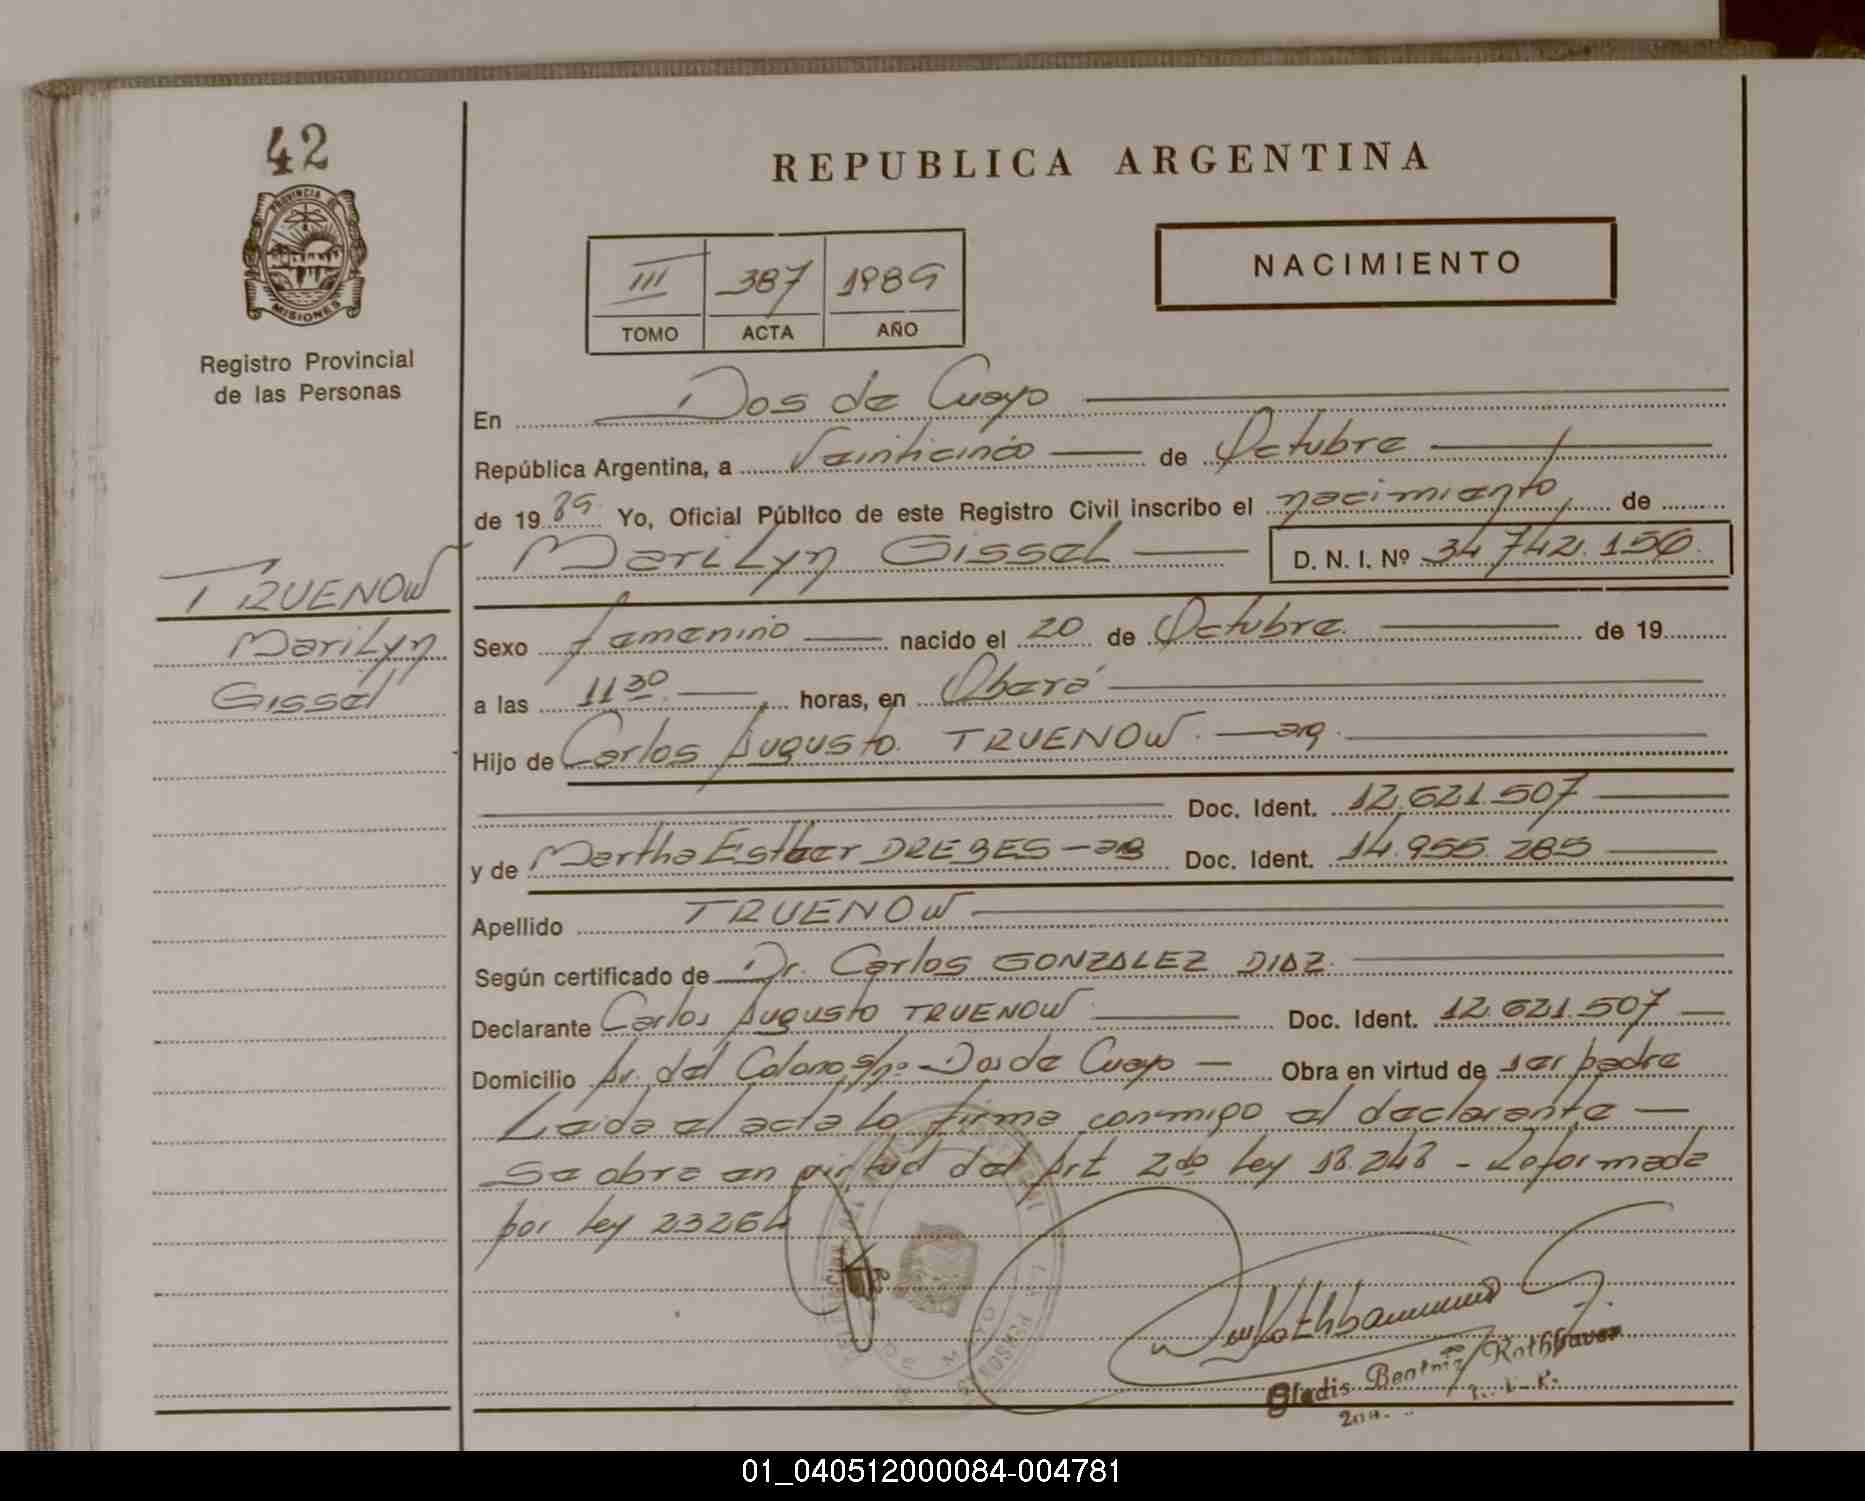 42
REPUBLICA ARGENTINA
PROVINCIA DE MISIONES
Registro Provincial
de las Personas
III 387 1989
TOMO ACTA AÑO
NACIMIENTO
En Dos de Mayo
República Argentina, a Veinticinco de Octubre
de 19 89 Yo, Oficial Público de este Registro Civil inscribo el nacimiento de
Marilyn Gissel D. N. I. Nº 34.742.156
TRUENOW
Marilyn
Gissel
Sexo femenino nacido el 20 de Octubre de 19
a las 11 30 horas, en Oberá
Hijo de Carlos Augusto TRUENOW. - arg.
Doc. Ident. 12.621.507
y de Martha Esther DREBES - arg Doc. Ident. 14.955.285
Apellido TRUENOW
Según certificado de Dr. Carlos GONZALEZ DIAZ.
Declarante Carlos Augusto TRUENOW Doc. Ident. 12.621.507
Domicilio Av. del Colono s/nº - Dos de Mayo Obra en virtud de ser padre
Leida el acta la firma conmigo el declarante
Se obra en virtud del Art 2do Ley 18.248 - Reformada
por Ley 23264
Gladis Beatriz Rothbauer
01_040512000084-004781